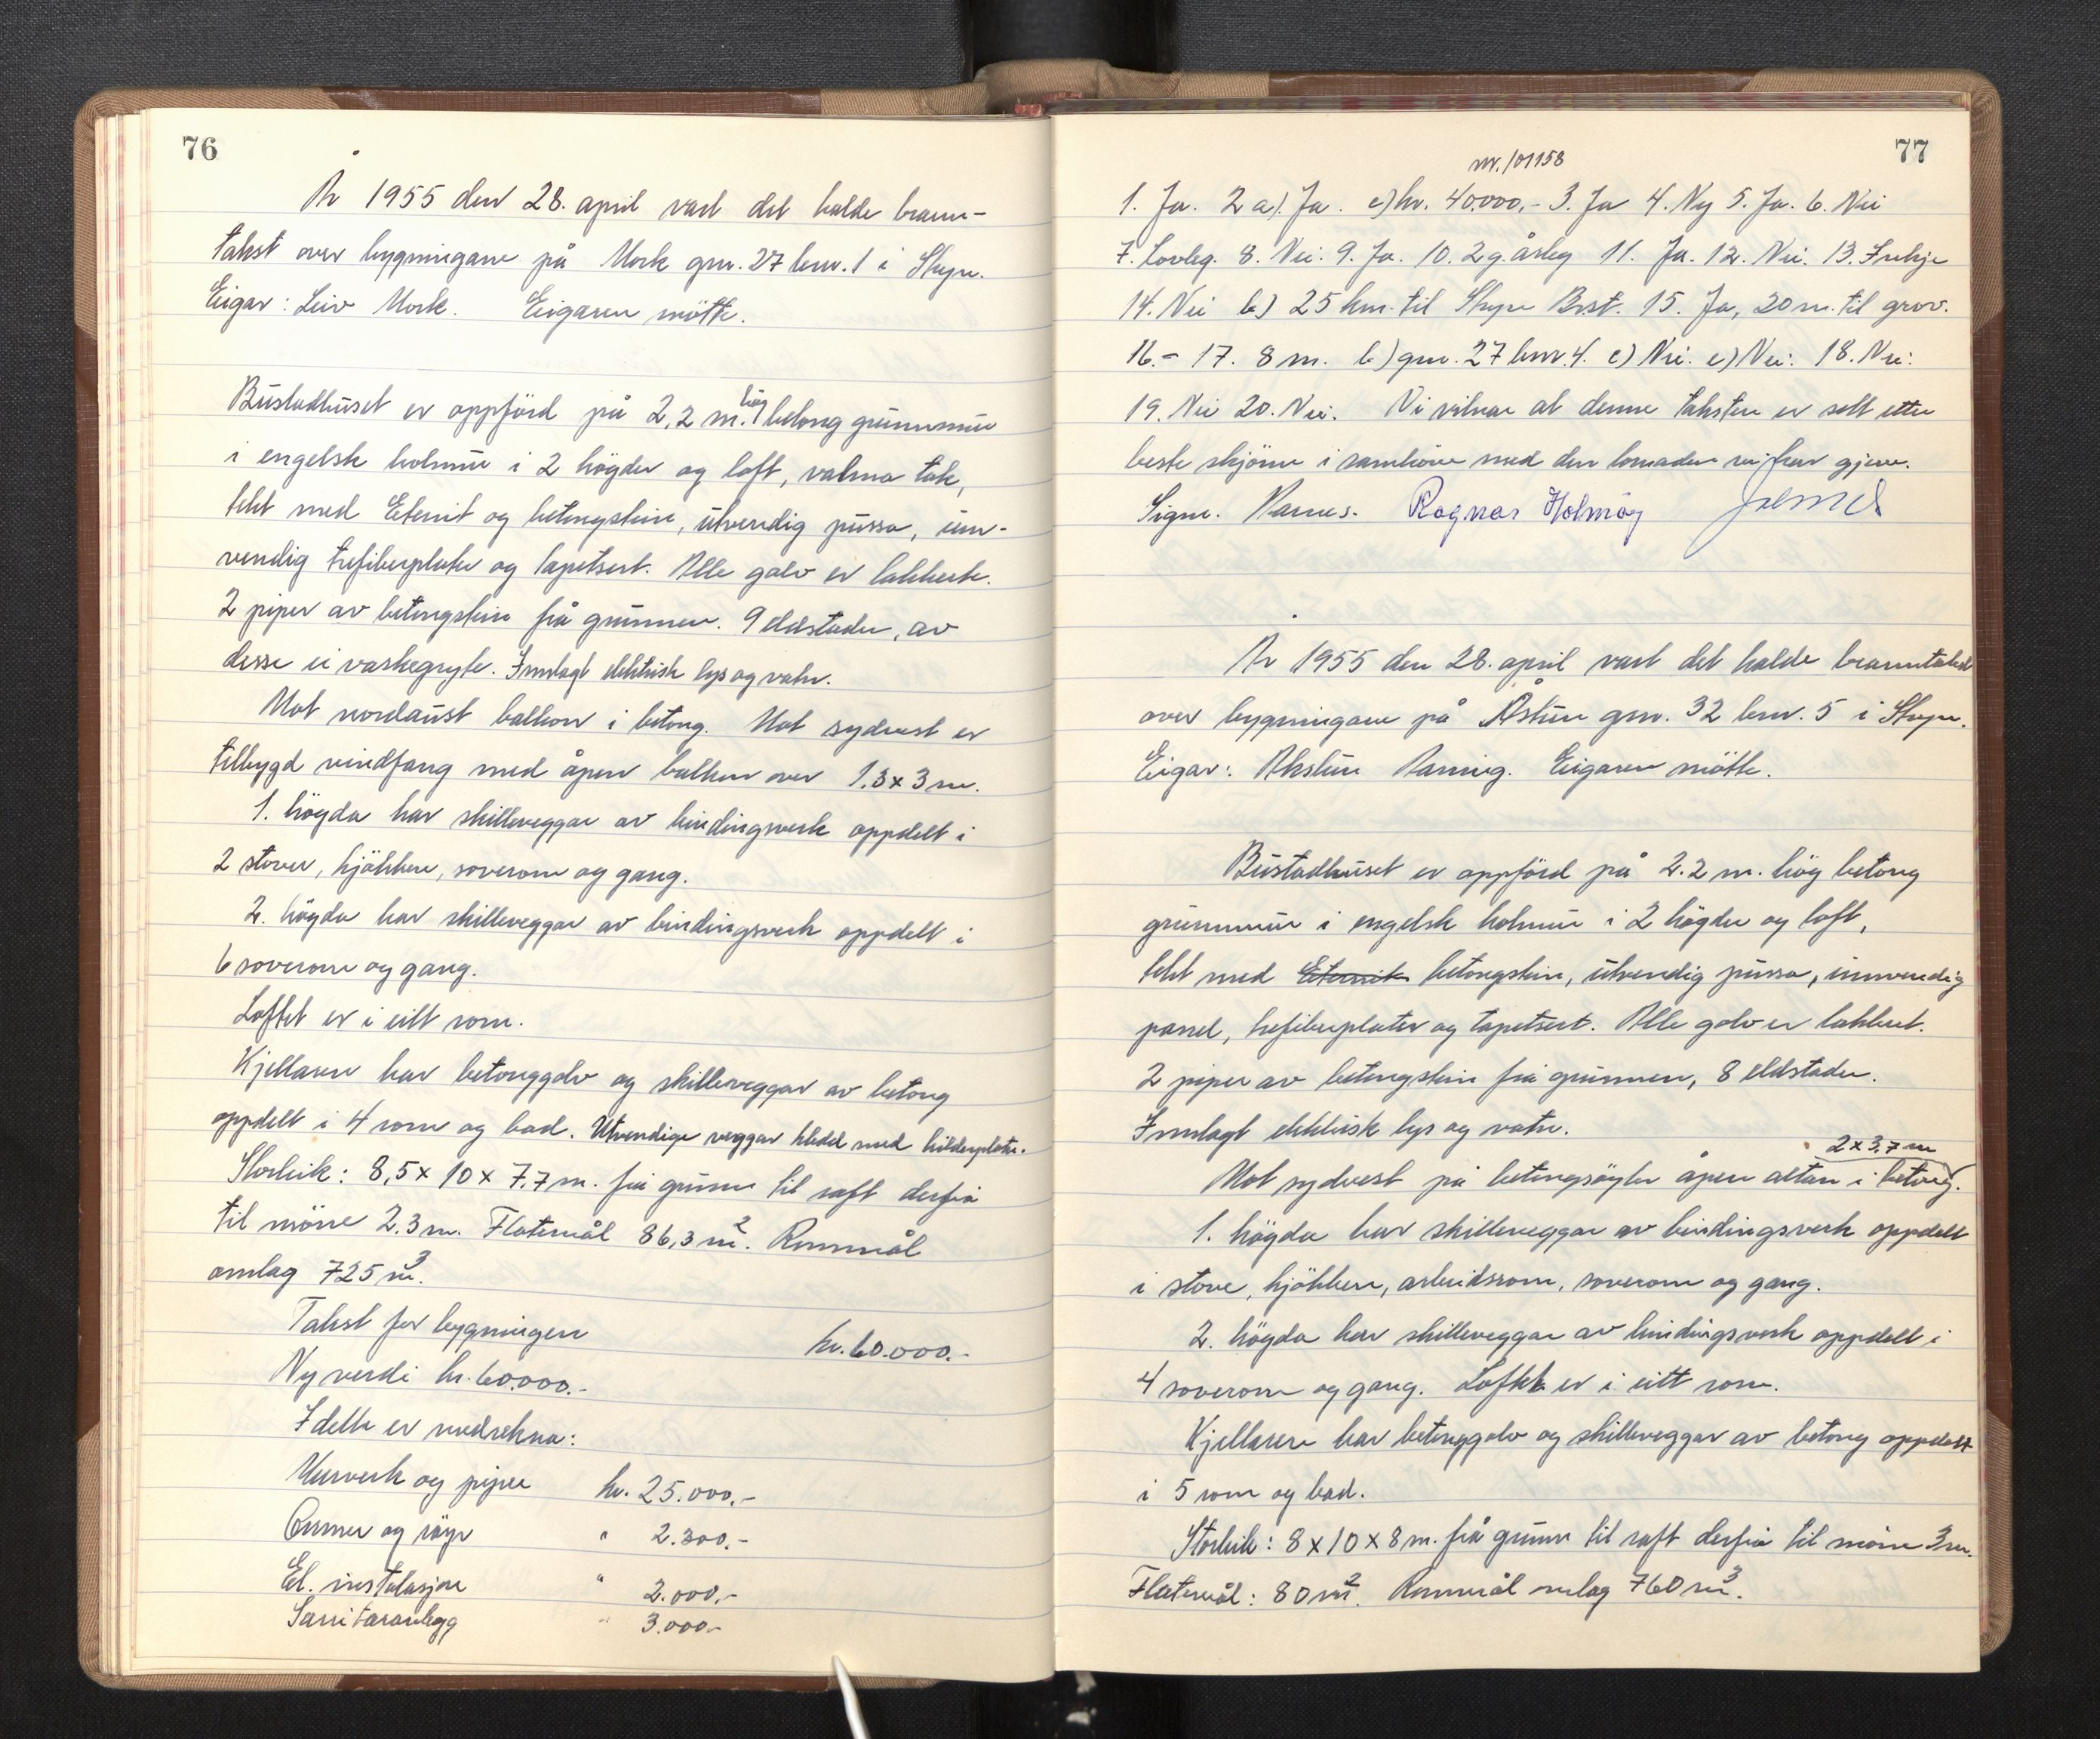 76
År 1955 den 28. april vart det halde brann-
takst over bygningane på Mork gnr. 27 bnr. 1 i Stryn.
Eigar: Leiv Mork. Eigaren mötte.
Bustadhuset er oppförd på 2,2 m. hög betong grunnmur
i engelsk holmur i 2 högder og loft, valma tak,
tekt med Eternit og betongstein, utvendig pussa, inn-
vendig trefiberplater og tapetsert. Alle golv er lakkerte.
2 piper av betongstein frå grunnen. 9 eldstader, av
desse ei vaskegryte. Innlagt elektrisk lys og vatn.
Mot nordaust balkon i betong. Mot sydvest er
tilbygd vindfang med åpen balkon over 1.3 x 3 m.
1. högda har skilleveggar av bindingsverk oppdelt i
2 stover, kjökken, soverom og gang.
2. högda har skilleveggar av bindingsverk oppdelt i
6 soverom og gang.
Loftet er i eitt rom.
Kjellaren har betonggolv og skilleveggar av betong
oppdelt i 4 rom og bad. Utvendige veggar kledd med
Storleik: 8,5 x 10 x 7,7 m. frå grunn til raft derfrå
til möne 2.3 m. Flatemål 86,3 m2. Rommål
omlag 725 m3.
Takst for bygningen kr. 60.000.-
Ny verdi kr. 60.000.-
I dette er medrekna:
Murverk og piper kr. 25.000.-
Omner og röyr " 2.300.-
El. instalasjon " 2.000.-
Sanitæranlegg " 3.000.-
77
nr. 101158
1. Ja. 2 a). Ja. c) kr. 40.000.- 3. Ja 4. Ny 5. Ja. 6. Nei
7. Lovleg. 8. Nei. 9. Ja. 10. 2 g. årleg 11. Ja. 12. Nei. 13. Innkje
14. Nei b) 25 km. til Stryn Br.st. 15. Ja, 20 m. til grov.
16. - 17. 8 m. b) gnr. 27 bnr. 4. c) Nei. e) Nei. 18. Nei.
19. Nei 20. Nei. Vi vitnar at denne taksten er sett etter
beste skjönn i samhöve med den lovnaden vi har gjeve.
Sign. Ragnar Holmöy
År 1955 den 28. april vart det halde branntakst
over bygningane på Åstun gnr. 32 bnr. 5 i Stryn.
Eigar: Eigaren mötte.
Bustadhuset er oppförd på 2.2 m. hög betong
grunnmur i engelsk holmur i 2 högder og loft,
tekt med Eternit betongstein, utvendig pussa, innvendig
panel, trefiberplater og tapetsert. Alle golv er lakkert.
2 piper av betongstein frå grunnen, 8 eldstader.
Innlagt elektrisk lys og vatn.
2 x 3,7 m
Mot sydvest på betongsöyler åpen altan i betong.
1. högda har skilleveggar av bindingsverk oppdelt
i stove, kjökken, arbeidsrom, soverom og gang.
2. högda har skilleveggar av bindingsverk oppdelt i
4 soverom og gang. Loftet er i eitt rom.
Kjellaren har betonggolv og skilleveggar av betong oppdelt
i 5 rom og bad.
Storleik: 8 x 10 x 8 m. frå grunn til raft derfrå til möne 3 m.
Flatemål: 80 m2. Rommål omlag 760 m3.